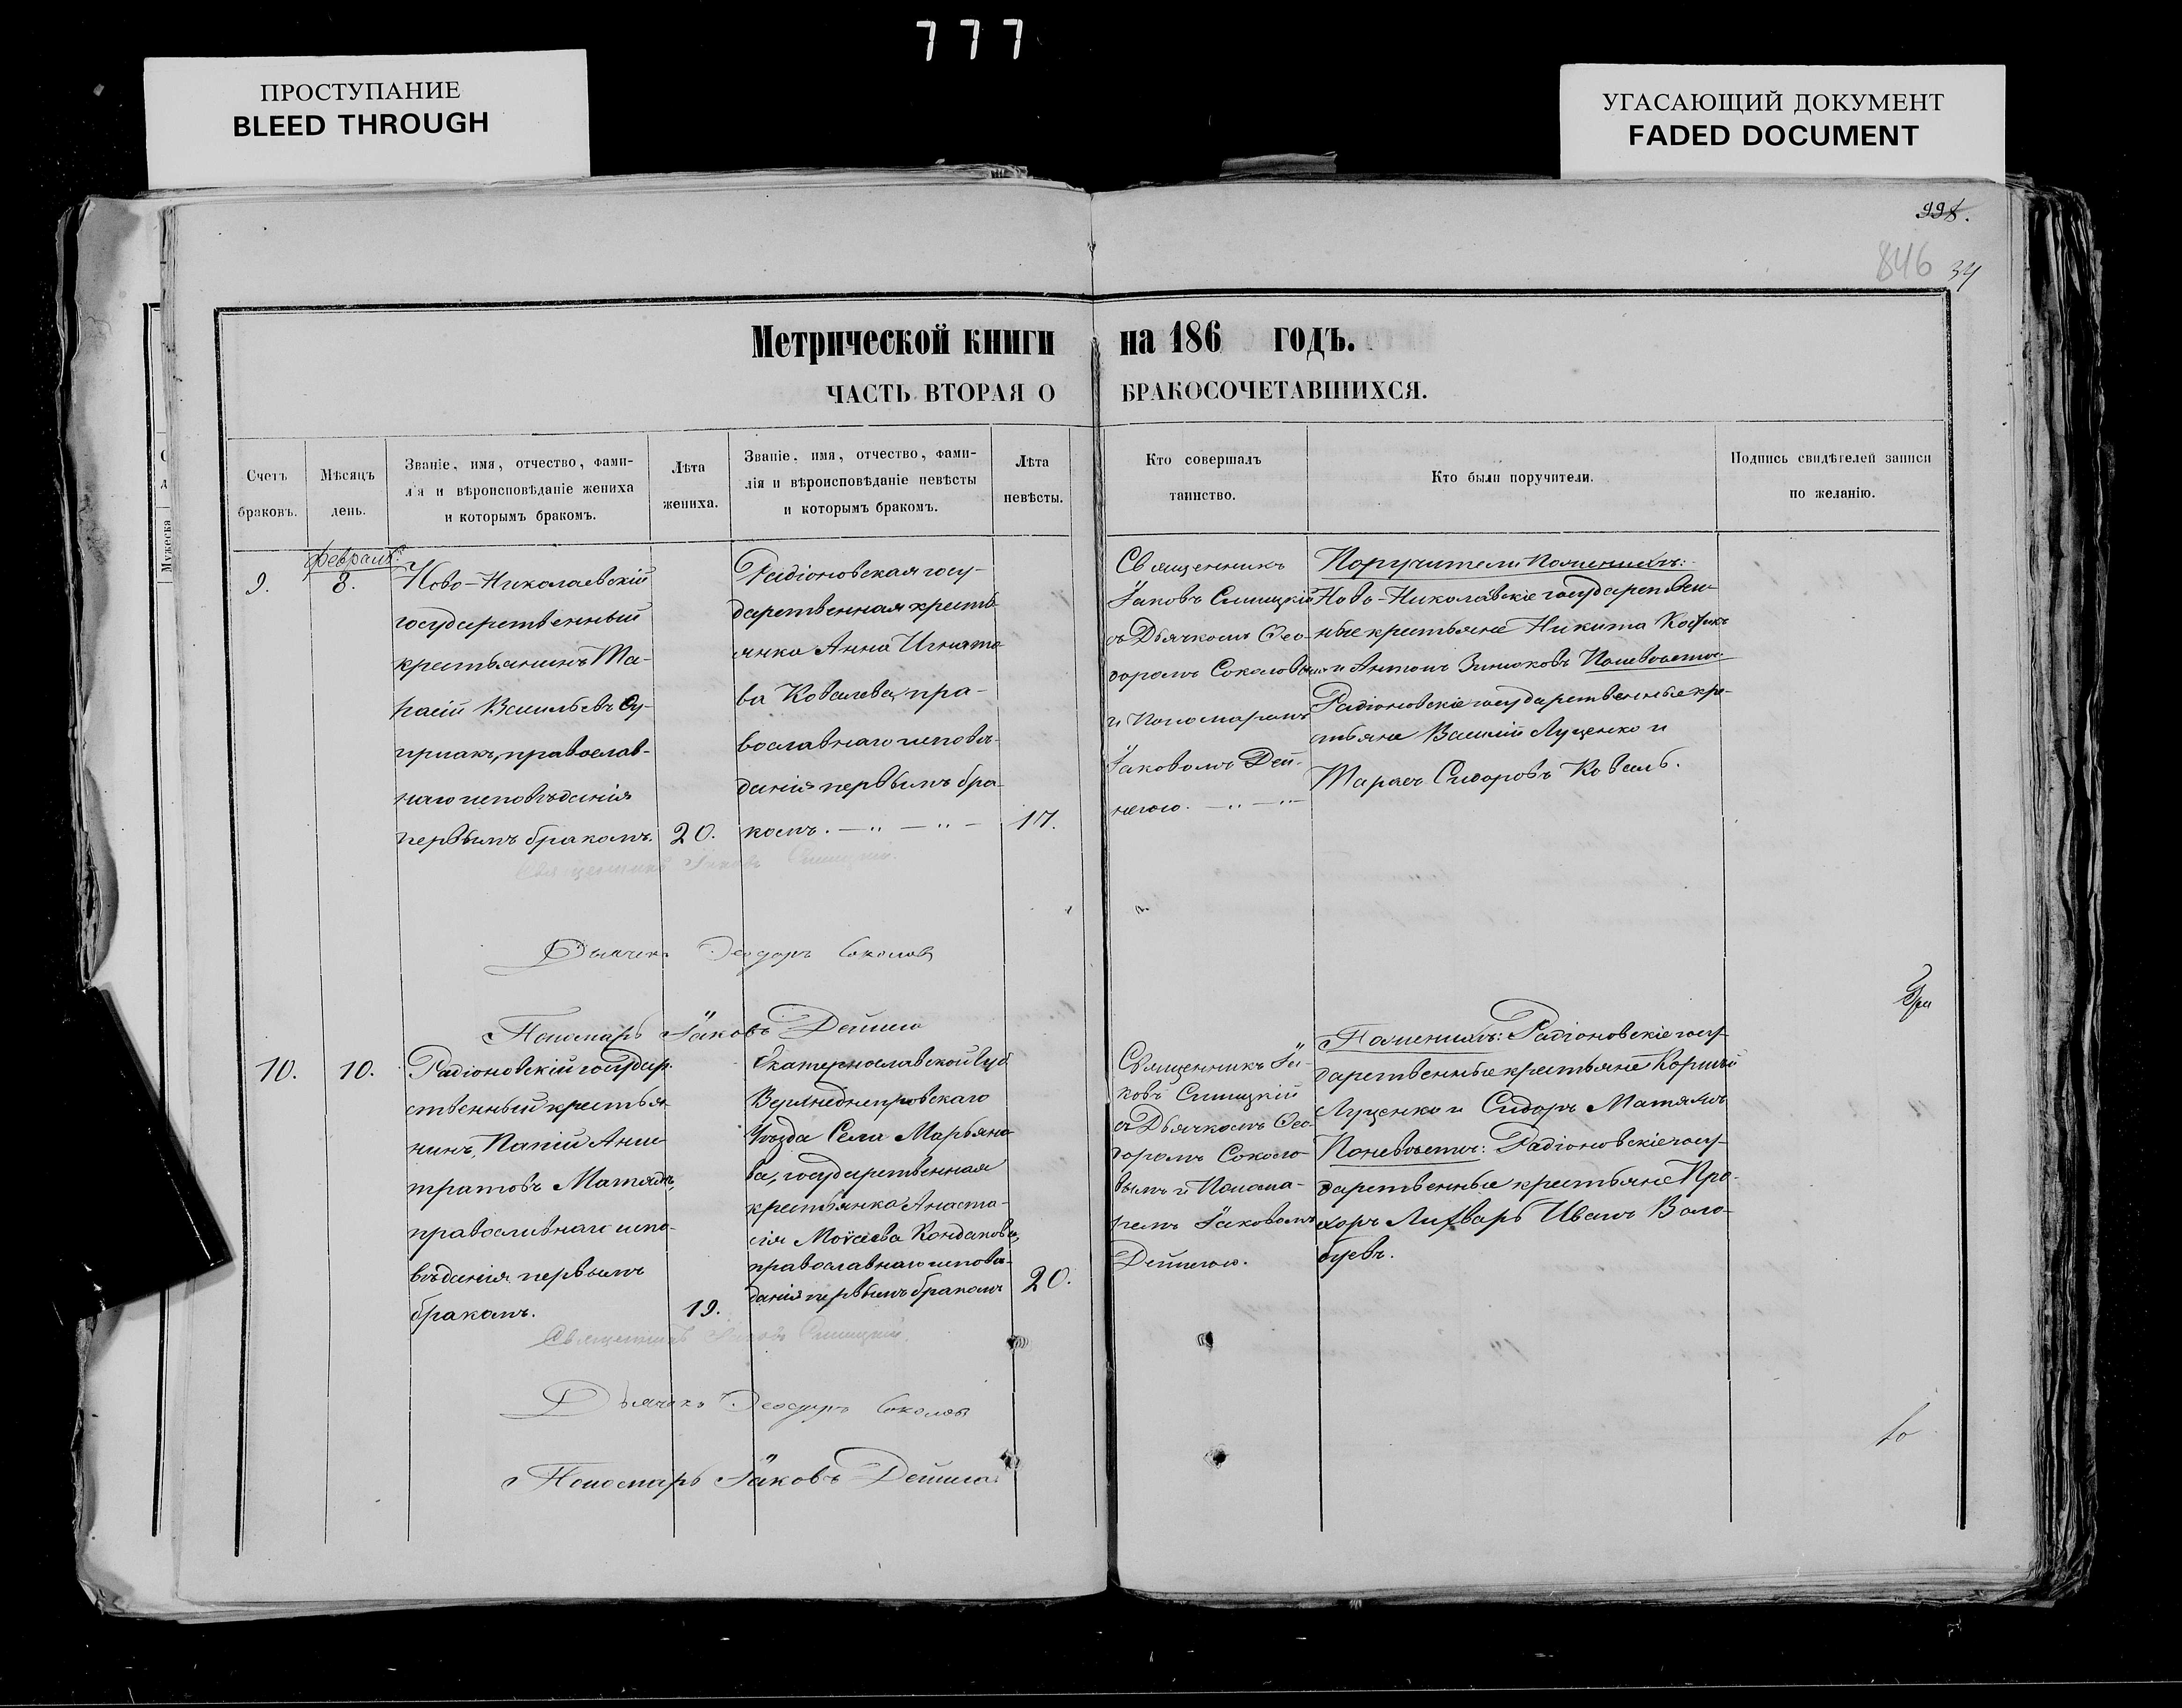 777
ПРОСТУПАНИЕ
BLEED THROUGH
УГАСАЮЩИЙ ДОКУМЕНТ
FADED DOCUMENT
998.
846
34
Метрической книги на 186 годъ.
ЧАСТЬ ВТОРАЯ О БРАКОСОЧЕТАВШИХСЯ.
Счетъ
браковъ.
Мѣсяцъ
день.
Званіе, имя, отчество, фами-
лія и вѣроисповѣданіе жениха
и которымъ бракомъ.
Лѣта
жениха.
Званіе, имя, отчество, фами-
лія и вѣроисповѣданіе невѣсты
и которымъ бракомъ.
Лѣта
невѣсты.
Кто совершалъ
таинство.
Кто были поручители.
Подпись свидѣтелей записи
по желанію.
Мужеска
9.
Февраль
8.
Ново-Николаевскій
государственный
крестьянинъ
Васильевъ
православ-
наго исповѣданія
первымъ бракомъ.
20.
Радіоновская госу-
дарственная кресть-
янка Анна Игнато-
ва Ковалева, пра-
вославнаго исповѣ-
данія первымъ бра-
комъ. — „ — „ —
17.
Священникъ
Іаковъ
съ Дьячкомъ Ѳео-
доромъ Соколовымъ
и Пономаремъ
Іаковомъ Дей-
негою. — „ — „ —
Поручители По женихѣ:
Ново-Николаевскіе государствен-
ные крестьяне Никита
и Антонъ Зинюковъ По невѣстѣ
Радіоновскіе государственные кре-
стьяне Василій Луценко и
Тарасъ Сидоровъ Коваль.
Священникъ Іаковъ
Дьячекъ Ѳеодоръ Соколовъ
Пономарь Іаковъ Дейнега
10.
10.
Радіоновскій государ-
ственный крестья-
нинъ, Папій Анти-
патровъ Матяшъ,
православнаго испо-
вѣданія первымъ
бракомъ.
19.
Екатеринославской Губ
Верхнеднепровскаго
Уѣзда Села Марьяно-
ва, государственная
крестьянка Анаста-
сія Моѵсеева Кондакова,
православнаго исповѣ-
данія первымъ бракомъ
20.
Священникъ Іа-
ковъ
съ Дьячкомъ Ѳео-
доромъ Соколо-
вымъ и Понома-
ремъ Іаковомъ
Дейнегою.
По женихѣ: Радіоновскіе госу-
дарственные крестьяне Корнилій
Луценко и Сидоръ Матяшъ
По невѣстѣ: Радіоновскіе госу-
дарственные крестьяне Про-
хоръ Лихварь Иванъ Воло-
буевъ.
Священникъ Іаковъ
Дьячекъ Ѳеодоръ Соколовъ
Пономарь Іаковъ Дейнега